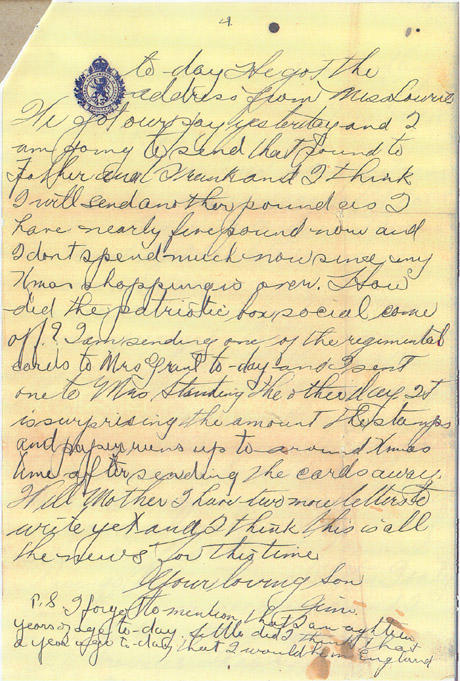 4.
to-day He got the
address from Miss Lowrie
We got our pay yesterday and I
am going to send that pound to
Father and Frank and I think
I will send another pound as I
have nearly five pound now and
I dont spend much now since my
Xmas shopping is over. How
did the patriotic box social come
off? I am sending one of the regimental
cards to Mrs Grant to-day and I sent
one to Mrs. the other day It
is surprising the amount the stamps
and paper runs up to around Xmas
time after sending the cards away.
Well Mother I have two more letters to
write yet and I think this is all
the news for this time
Your loving Son
Jim.
P.S I forgot to mention that I am eighteen
years of age to-day little did I think that
a year ago to-day that I would be in England